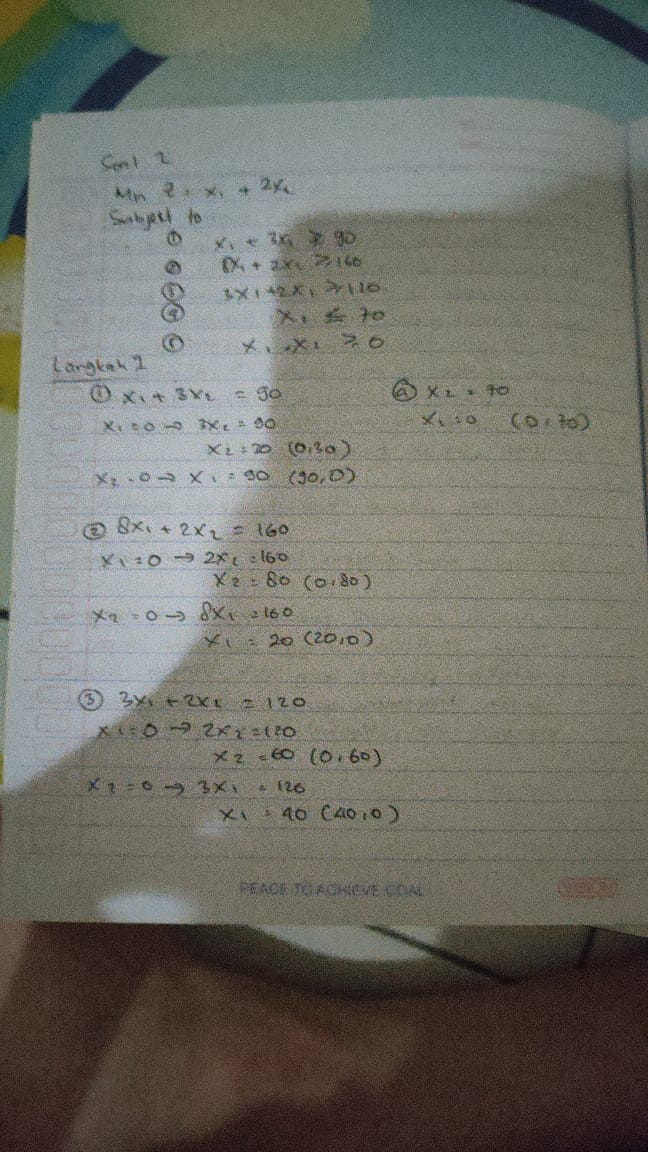 Soal 2
Min Z = x₁ + 2x₂
Subject to
① x₁ + 3x₂ ≥ 90
② 8x₁ + 2x₂ ≥ 160
③ 3x₁ + 2x₂ ≥ 120
④ ≤ 70
⑤ x₁, x₂ ≥ 0
Langkah 1
① x₁ + 3x₂ = 90
x₁ = 0 → 3x₂ = 90
x₂ = 30 (0,30)
x₂ = 0 → x₁ = 90 (90,0)
② 8x₁ + 2x₂ = 160
x₁ = 0 → 2x₂ = 160
x₂ = 80 (0,80)
x₂ = 0 → 8x₁ = 160
x₁ = 20 (20,0)
③ 3x₁ + 2x₂ = 120
x₁ = 0 → 2x₂ = 120
x₂ = 60 (0,60)
x₂ = 0 → 3x₁ = 120
x₁ = 40 (40,0)
④ x₂ = 70
x₁ = 0 (0,70)
PEACE TO ACHIEVE GOAL
VISION